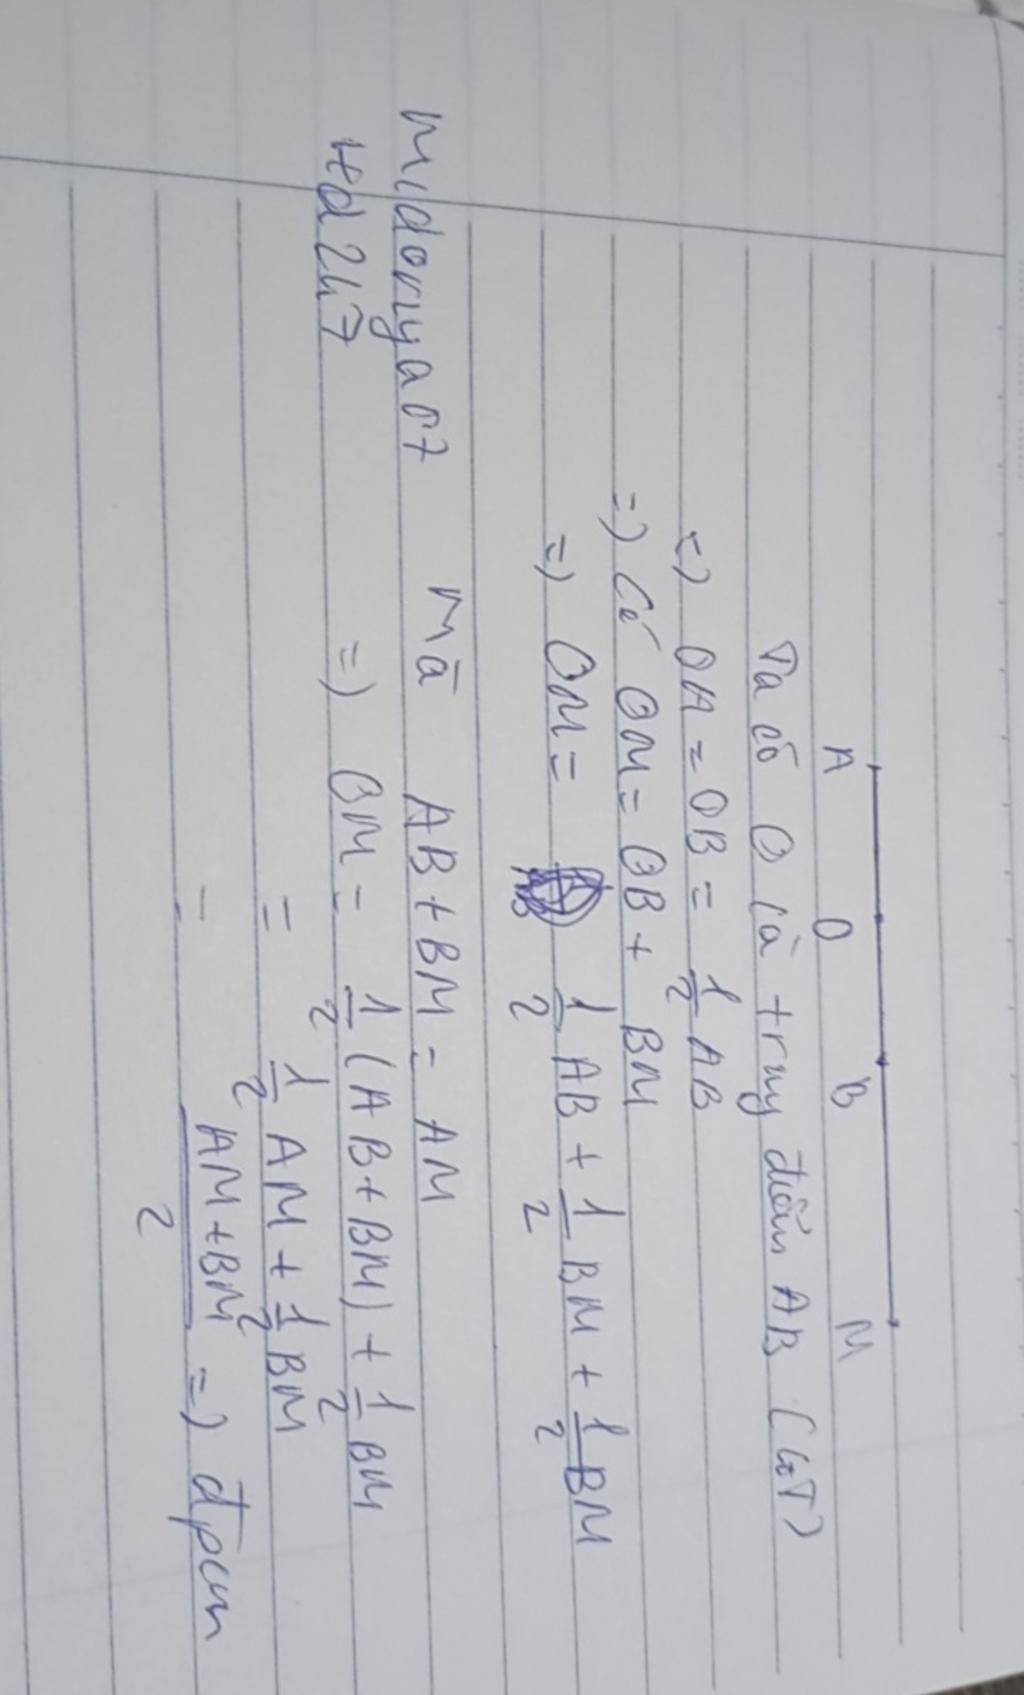 A O B M
Ta có O là trung điểm AB (GT)
=) OA = OB = 1/2 AB
=) Có OM = OB + BM
=) OM = 1/2 AB + 1/2 BM + 1/2 BM
Midoriya07 Mà AB + BM = AM
Hd247 =) OM = 1/2 (AB + BM) + 1/2 BM
= 1/2 AM + 1/2 BM
= AM + BM / 2 =) đpcm